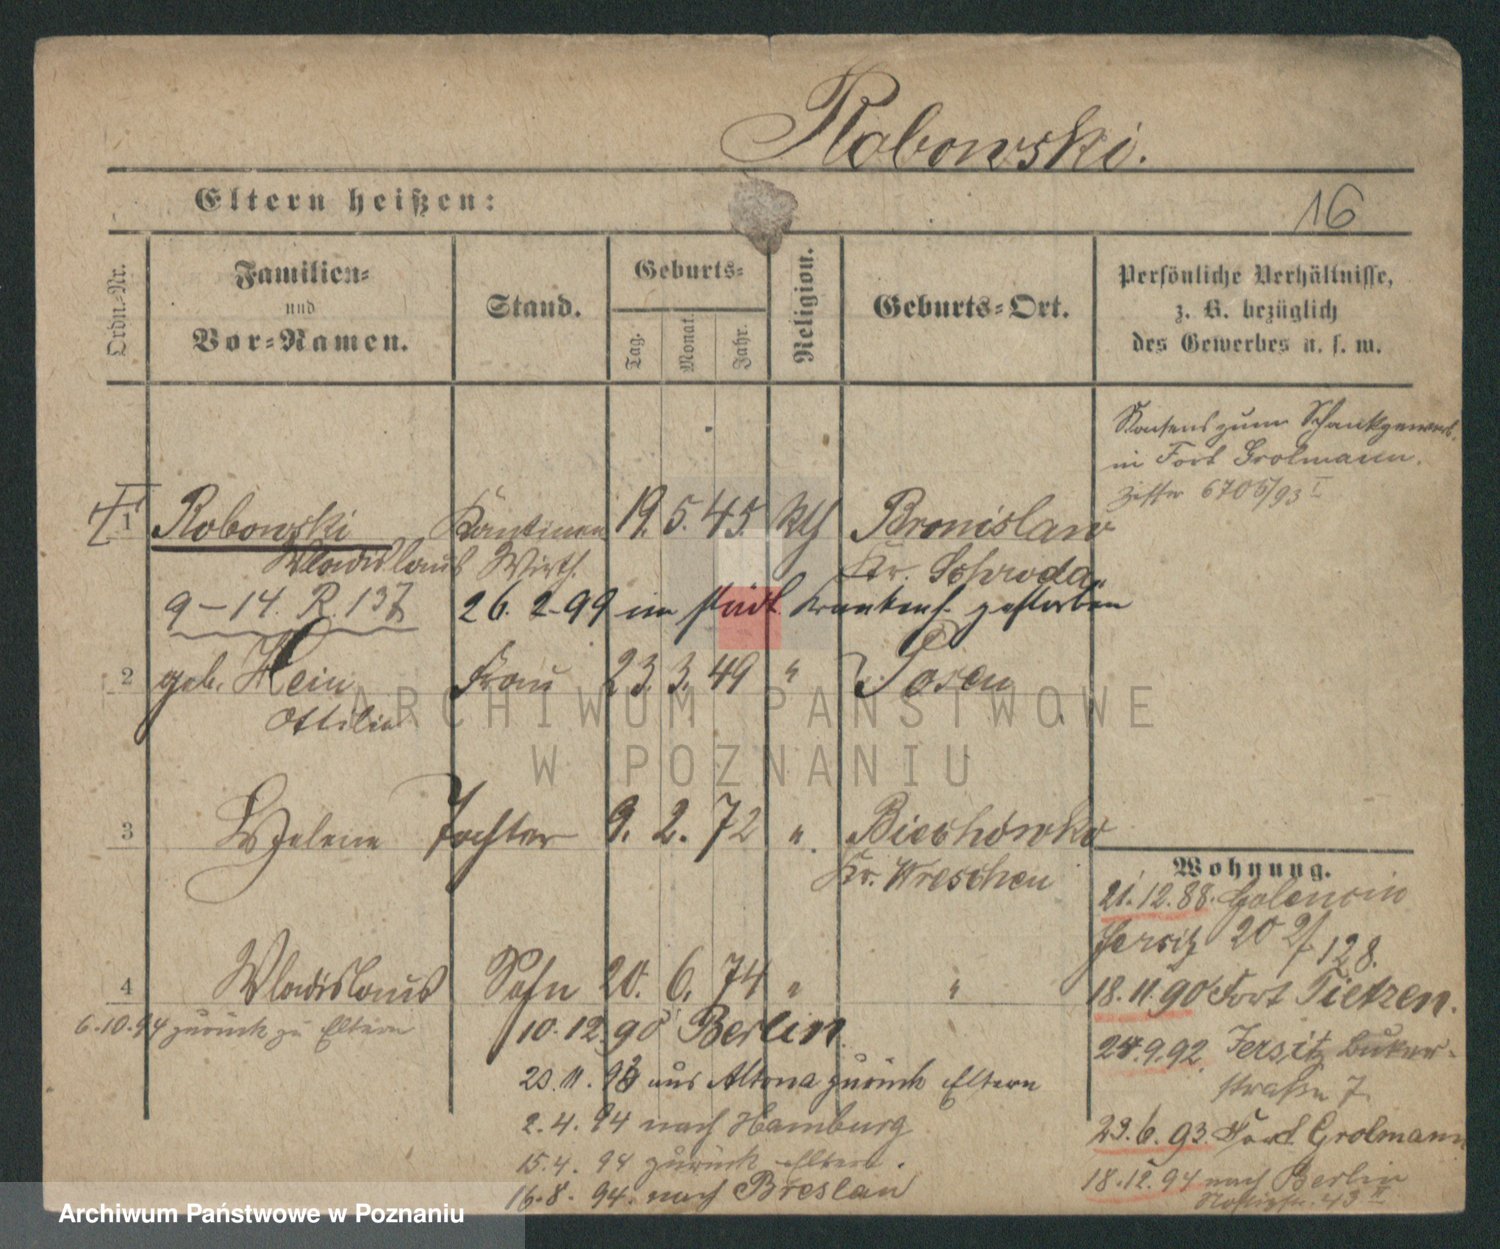 Robowski.
Eltern heißen:
16
Ordn.-Nr.
Familien-
und
Vor-Namen.
Stand.
Geburts-
Tag.
Monat.
Jahr.
Religion.
Geburts-Ort.
Persönliche Verhältnisse,
z. B. bezüglich
des Gewerbes u. s. w.
Konsens zum Schankgewerb.
in Fort Grolmann.
6705/93 I
1 Robowski Kantinen 19. 5. 45. Bronislaw
Wladislaus Wirth. Kr. Schroda
9-14. R. 137 26. 2. 99 im städt. Krankenh. gestorben
2 geb. Hein Frau 23. 3. 49 " Posen
Ottilie
3 Helene Tochter 9. 2. 72 " Biechowko
Kr. Wreschen
Wohnung.
21.12.88. Golencin
Jersitz 20 128.
4 Wladislaus Sohn 20. 6. 74 " "
18.11.90 Fort Tietzen.
6.10.94 zurück zu Eltern
10.12.90 Berlin.
24.9.92. Jersitz Buker-
straße 7
20.11.93 aus Altona zurück Eltern
2.4.94 nach Hamburg
23.6.93. Fort Grolmann
15.4.94 zurück Eltern.
18.12.94 nach Berlin
16.8.94. nach Breslau
43 II
ARCHIWUM PAŃSTWOWE
W POZNANIU
Archiwum Państwowe w Poznaniu